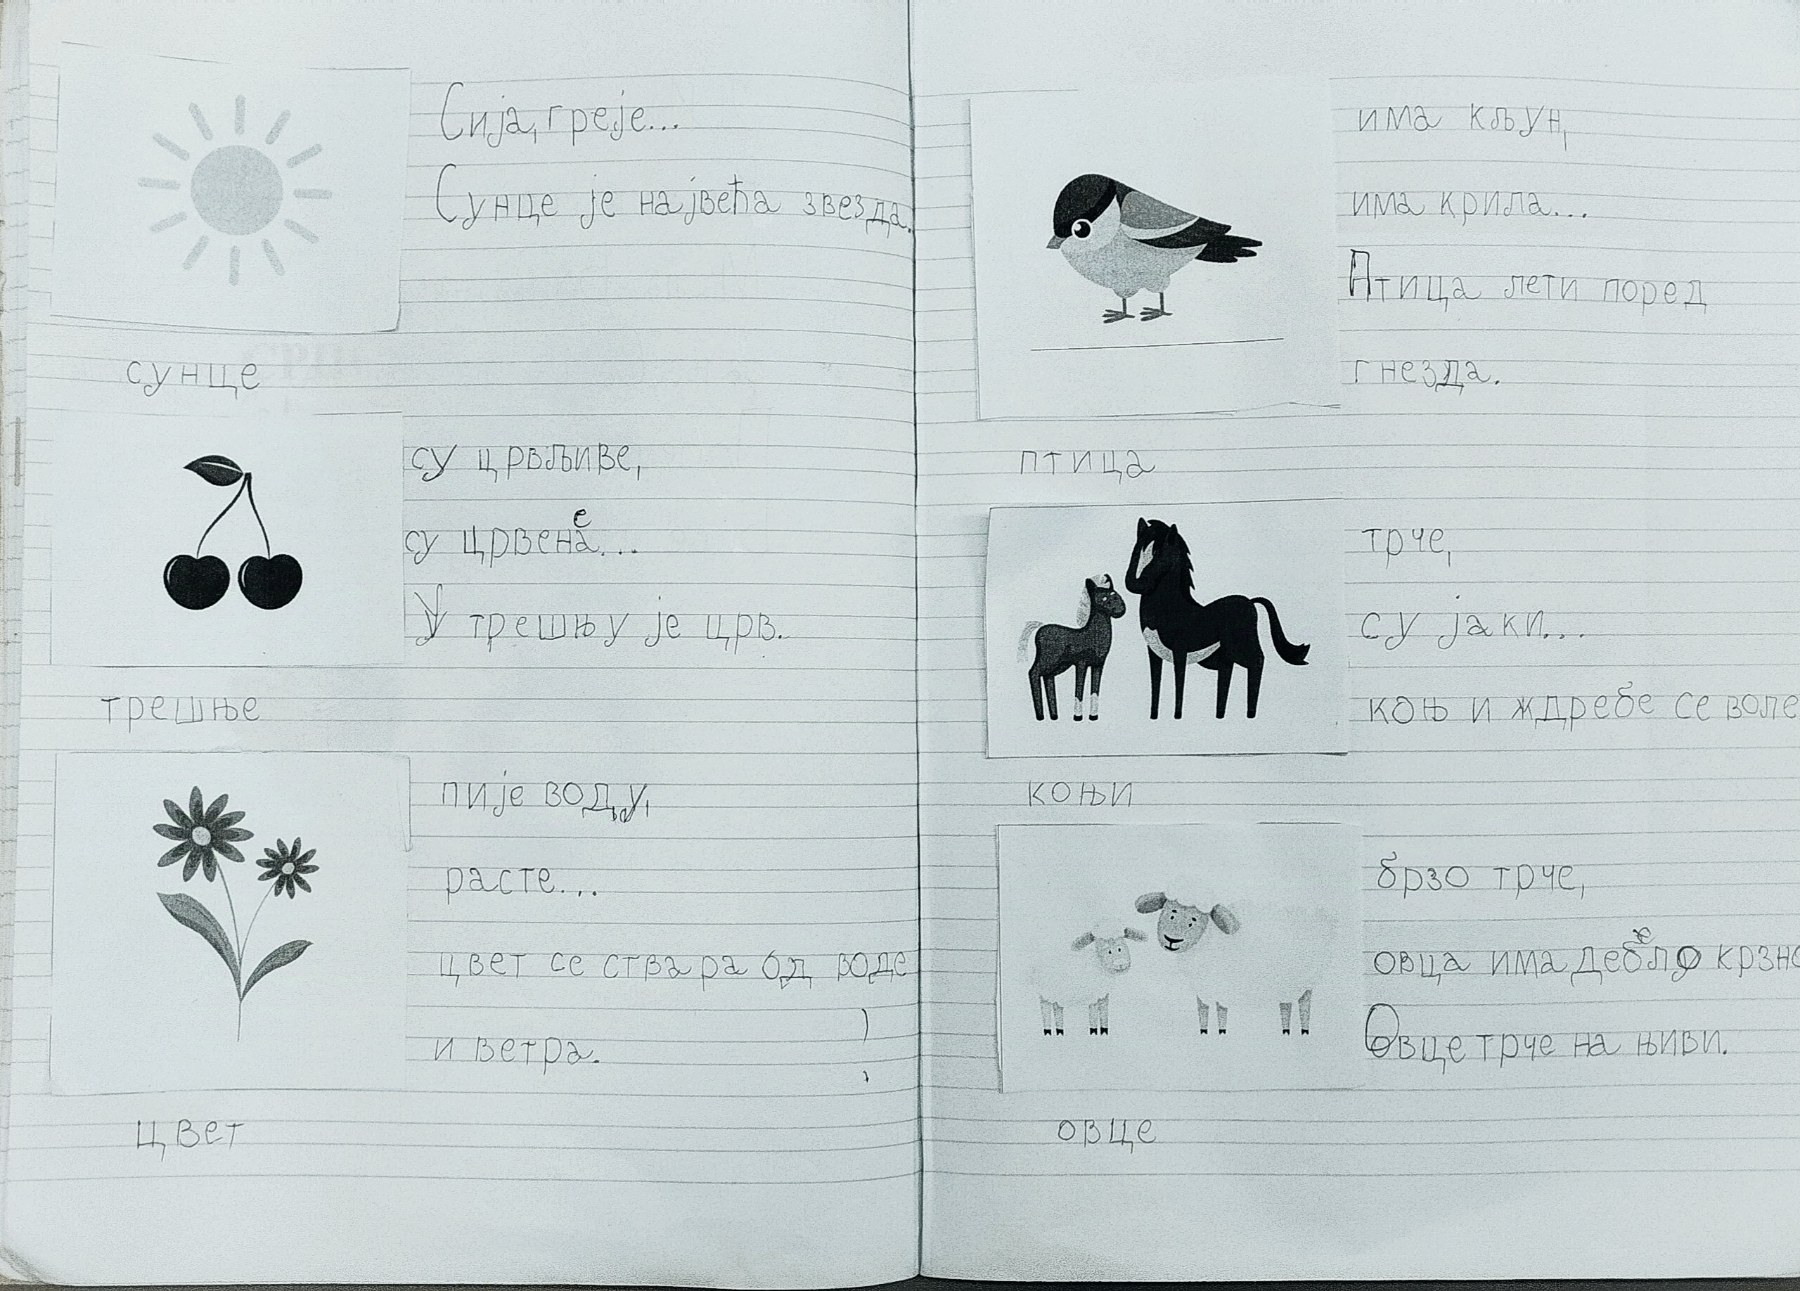 Сија, греје...
Сунце је највећа звезда.
сунце
су црвљиве,
су црвене...
У трешњу је црв.
трешње
пије воду,
расте...
цвет се ствара од воде
и ветра.
цвет
има кљун,
има крила...
Птица лети поред
гнезда.
птица
трче,
су јаки...
коњ и ждребе се воле
коњи
брзо трче,
овца има дебело крзно
Овце трче на њиви.
овце